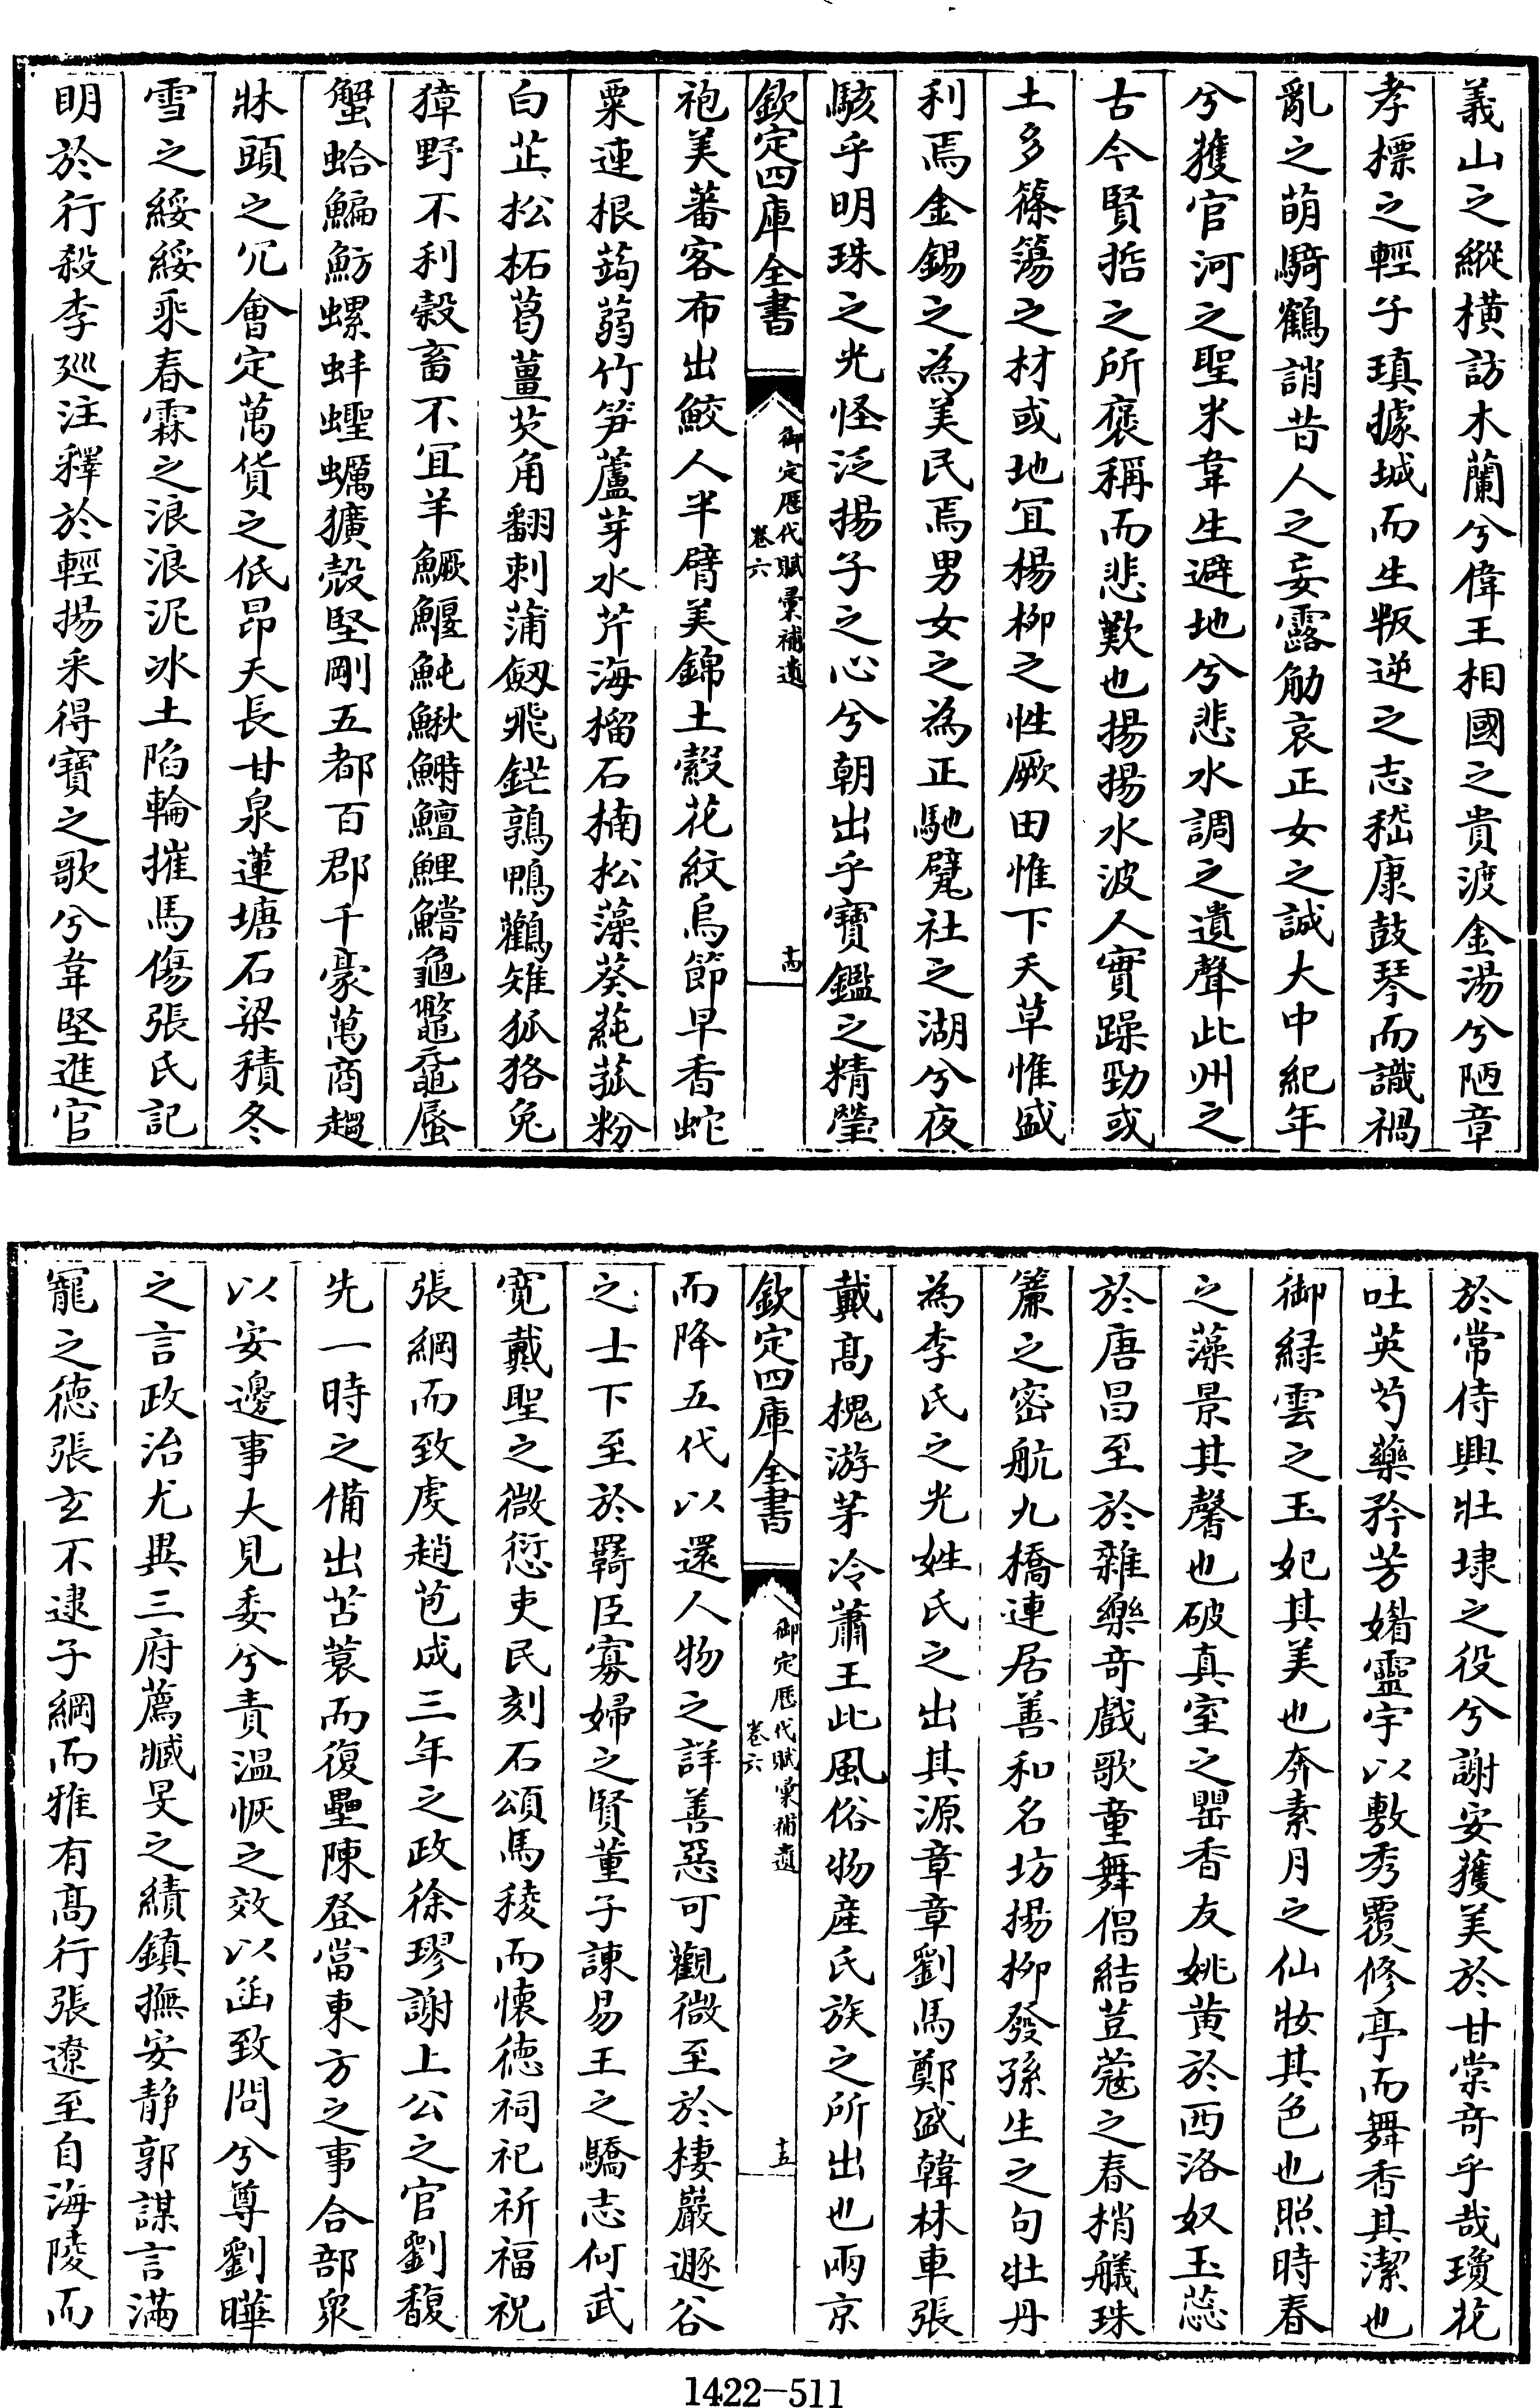 義山之縱橫訪木蘭兮偉王相國之貴渡金湯兮陋章
孝標之輕子瑱據城而生叛逆之志嵇康鼓琴而識禍
亂之萌騎鶴誚昔人之妄露觔哀正女之誠大中紀年
兮獲官河之聖米韋生避地兮悲水調之遺聲此州之
古今賢哲之所褒稱而悲歎也揚揚水波人實躁勁或
土多篠簜之材或地宜楊柳之性厥田惟下天草惟盛
利焉金錫之為美民焉男女之為正馳甓社之湖兮夜
駭乎明珠之光怪泛揚子之心兮朝出乎寶鑑之精瑩
欽定四庫全書
御定歷代賦彙補遺
卷六
十四
袍美蕃客布出鮫人半臂美錦土縠花紋烏節早香蛇
粟連根蒟蒻竹笋蘆芽水芹海榴石楠松藻葵蒓菰粉
白芷松柘葛薑芡角翻刺蒲劔飛鋩鶉鴨鸛雉狐狢兔
獐野不利穀畜不宜羊鱖鰋魨鰍鰣鱣鯉鱨龜鼈黿蜃
蟹蛤鯿魴螺蚌蟶蠣獷殼堅剛五都百郡千豪萬商趨
牀頭之冗會定萬貨之低昂天長甘泉蓮塘石梁積冬
雪之綏綏乘春霖之浪浪泥冰土陷輪摧馬傷張氏記
明於行殺李廵注釋於輕揚釆得寶之歌兮韋堅進官
於常侍興壯埭之役兮謝安獲美於甘棠竒乎哉瓊花
吐英芍藥矜芳媚靈宇以敷秀覆修亭而舞香其潔也
御緑雲之玉妃其美也奔素月之仙妝其色也照時春
之藻景其馨也破真室之罌香友姚黄於西洛奴玉蕊
於唐昌至於雜樂竒戲歌童舞倡結荳蔻之春梢艤珠
簾之密航九橋連居善和名坊揚柳發孫生之句牡丹
為李氏之光姓氏之出其源章章劉馬鄭盛韓林車張
戴髙槐游茅冷蕭王此風俗物産氏族之所出也兩京
欽定四庫全書
御定歷代賦彙補遺
卷六
十五
而降五代以還人物之詳善惡可觀微至於棲巖遯谷
之士下至於羇臣寡婦之賢董子諫易王之驕志何武
寛戴聖之微愆吏民刻石頌馬稜而懷徳祠祀祈福祝
張綱而致虔趙苞成三年之政徐璆謝上公之官劉馥
先一時之備出苫蓑而復壘陳登當東方之事合部衆
以安邊事大見委兮責温恢之效以函致問兮尊劉曄
之言政治尤異三府薦臧旻之績鎮撫安静郭謀言滿
寵之徳張玄不逮子綱而雅有髙行張遼至自海陵而
1422-511